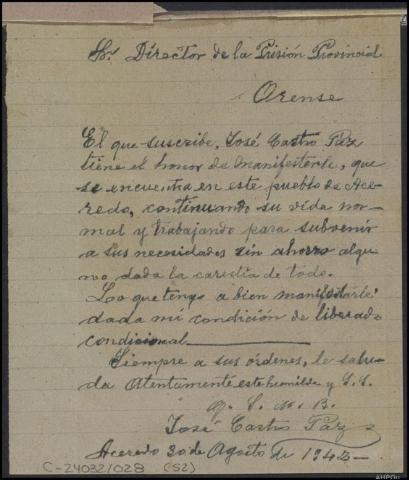 Sr. Director de la Prisión Provincial
Orense
El que suscribe, José Castro Paz
tiene el honor de manifestarle, que
se encuentra en este pueblo de Ace-
redo, continuando su vida nor-
mal y trabajando para subvenir
a sus necesidades sin ahorro algu-
no dada la carestia de todo.
Lo que tengo a bien manifestarle
dada mi condición de liberado
condicional.
Siempre a sus órdenes, le salu-
da atentamente este humilde y S.S.
Q. E. M. B.
José Castro Paz
Aceredo 30 de Agosto de 1943
C-24032/028 (52)
AHPOu